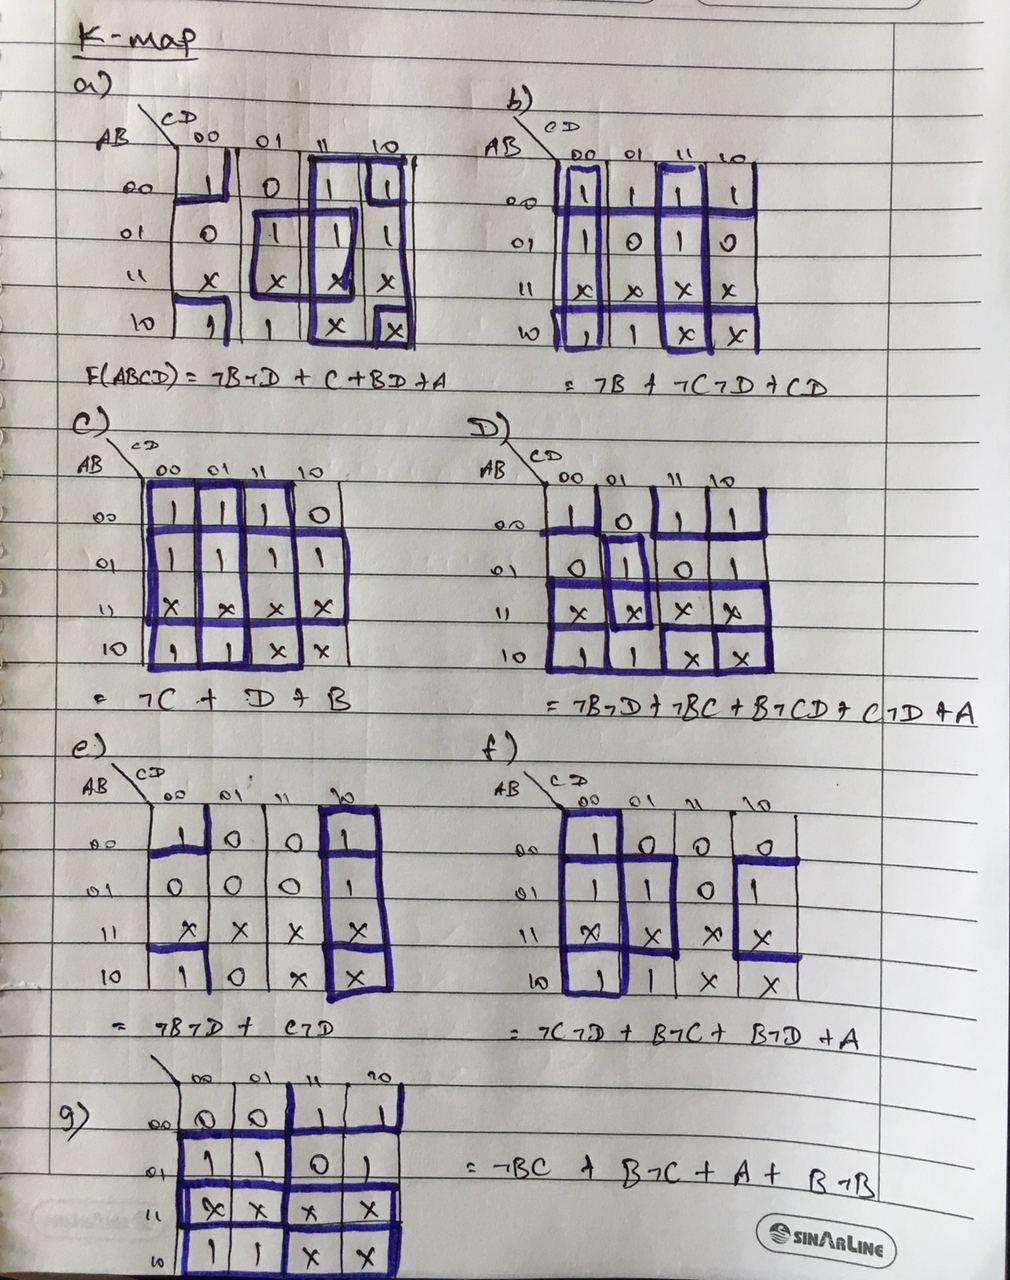 K-map
a)
CD
AB 00 01 11 10
00 1 0 1 1
01 0 1 1 1
11 x x x x
10 1 1 x x
F(ABCD) = ¬B¬D + C + BD + A
b)
CD
AB 00 01 11 10
00 1 1 1 1
01 1 0 1 0
11 x x x x
10 1 1 x x
= ¬B + ¬C¬D + CD
c)
CD
AB 00 01 11 10
00 1 1 1 0
01 1 1 1 1
11 x x x x
10 1 1 x x
= ¬C + D + B
D)
CD
AB 00 01 11 10
00 1 0 1 1
01 0 1 0 1
11 x x x x
10 1 1 x x
= ¬B¬D + ¬BC + B¬CD + C¬D + A
e)
CD
AB 00 01 11 10
00 1 0 0 1
01 0 0 0 1
11 x x x x
10 1 0 x x
= ¬B¬D + C¬D
f)
CD
AB 00 01 11 10
00 1 0 0 0
01 1 1 0 1
11 x x x x
10 1 1 x x
= ¬C¬D + B¬C + B¬D + A
g)
00 01 11 10
00 0 0 1 1
01 1 1 0 1
11 x x x x
10 1 1 x x
= ¬BC + B¬C + A + B¬B
SINARLINE